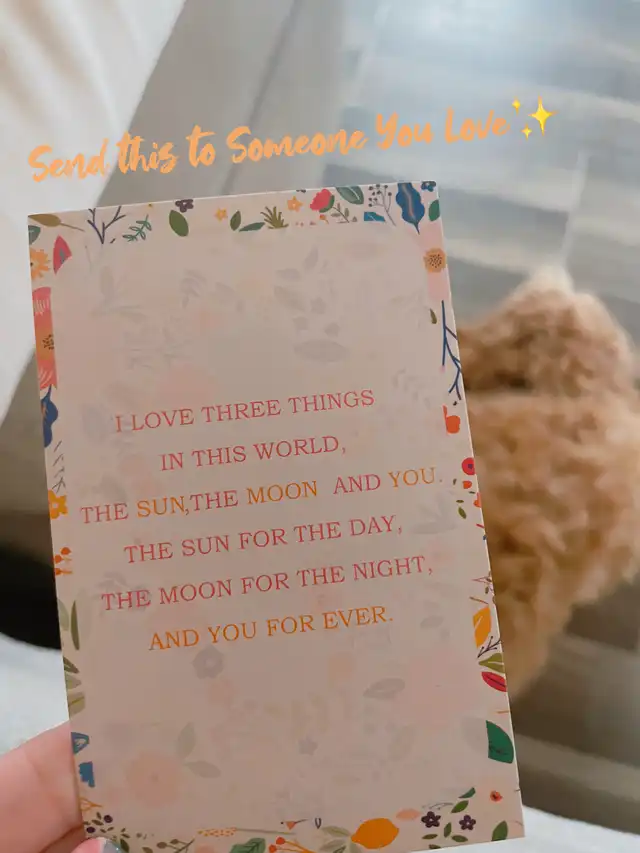 Send this to Someone You Love
I LOVE THREE THINGS
IN THIS WORLD,
THE SUN,THE MOON AND YOU.
THE SUN FOR THE DAY,
THE MOON FOR THE NIGHT,
AND YOU FOR EVER.